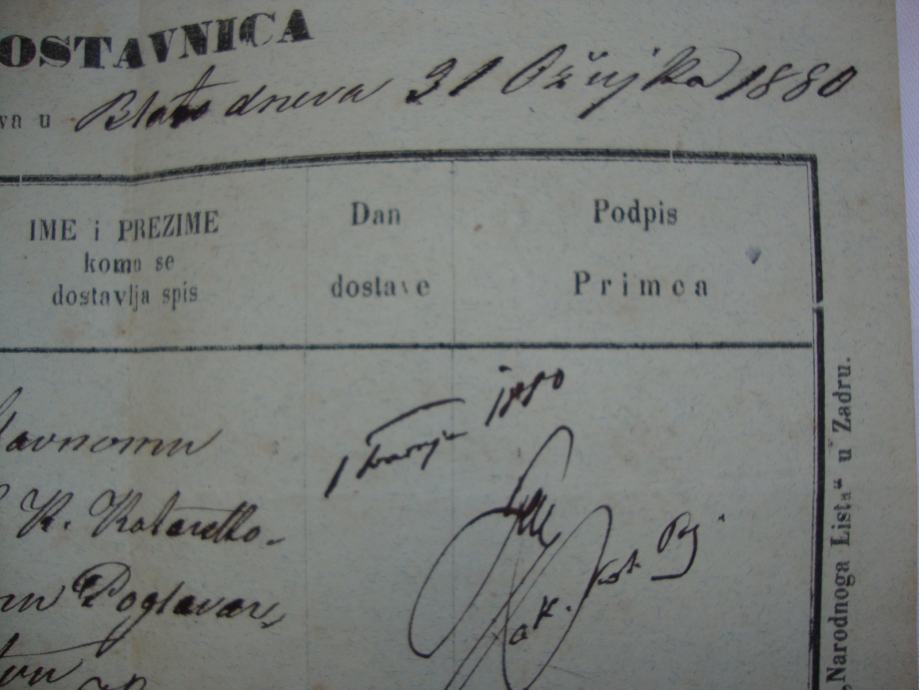 OSTAVNICA
va u Blato dneva 31 Ožujka 1880
IME i PREZIME
komu se
dostavlja spis
Dan
dostave
Podpis
Primca
1 Travnja 1880
lavnomu
K. Kotarsko-
mu Poglavar-
tvu
„Narodnoga Lista“ u Zadru.